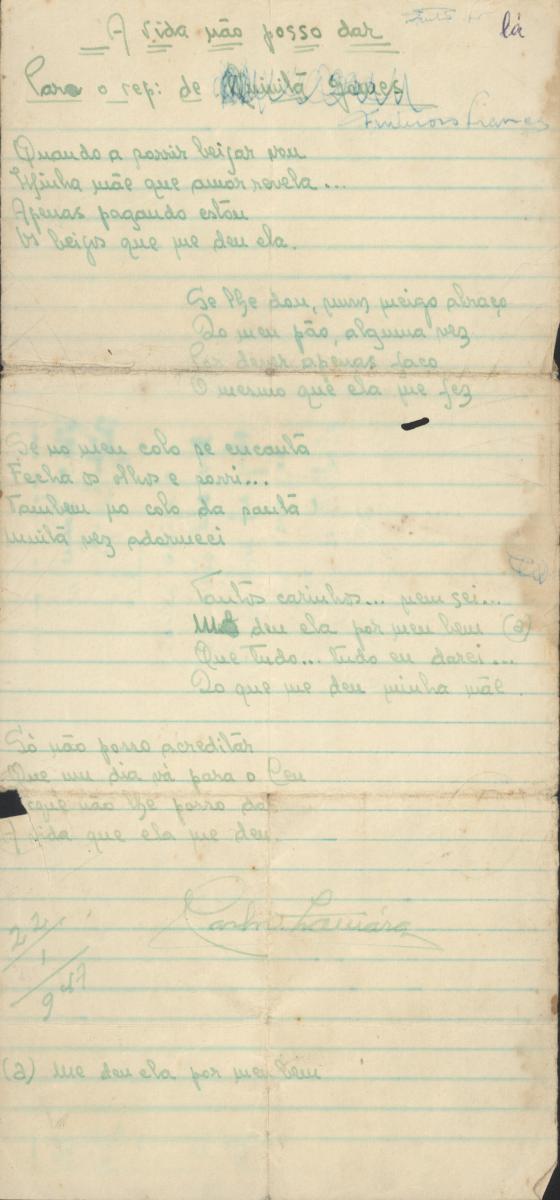 lá
A vida não posso dar
Para o rep: de Gomes
Quando a sorrir beijar vou
Minha mãe que amor revela...
Apenas pagando estou
Os beijos que me deu ela.
Se lhe dou, num meigo abraço
Do meu pão, alguma vez
Por dever apenas faço
O mesmo que ela me fez
Se no meu colo se encanta
Fecha os olhos e sorri...
Tambem no colo da santa
Muita vez adormeci
Tantos carinhos... nem sei...
Me deu ela por meu bem (a)
Que tudo... tudo eu darei...
Do que me deu minha mãe.
Só não posso acreditar
Que um dia vá para o Ceu
que não lhe posso dar
A vida que ela me deu.
22/1/957
(a) Me deu ela por meu bem